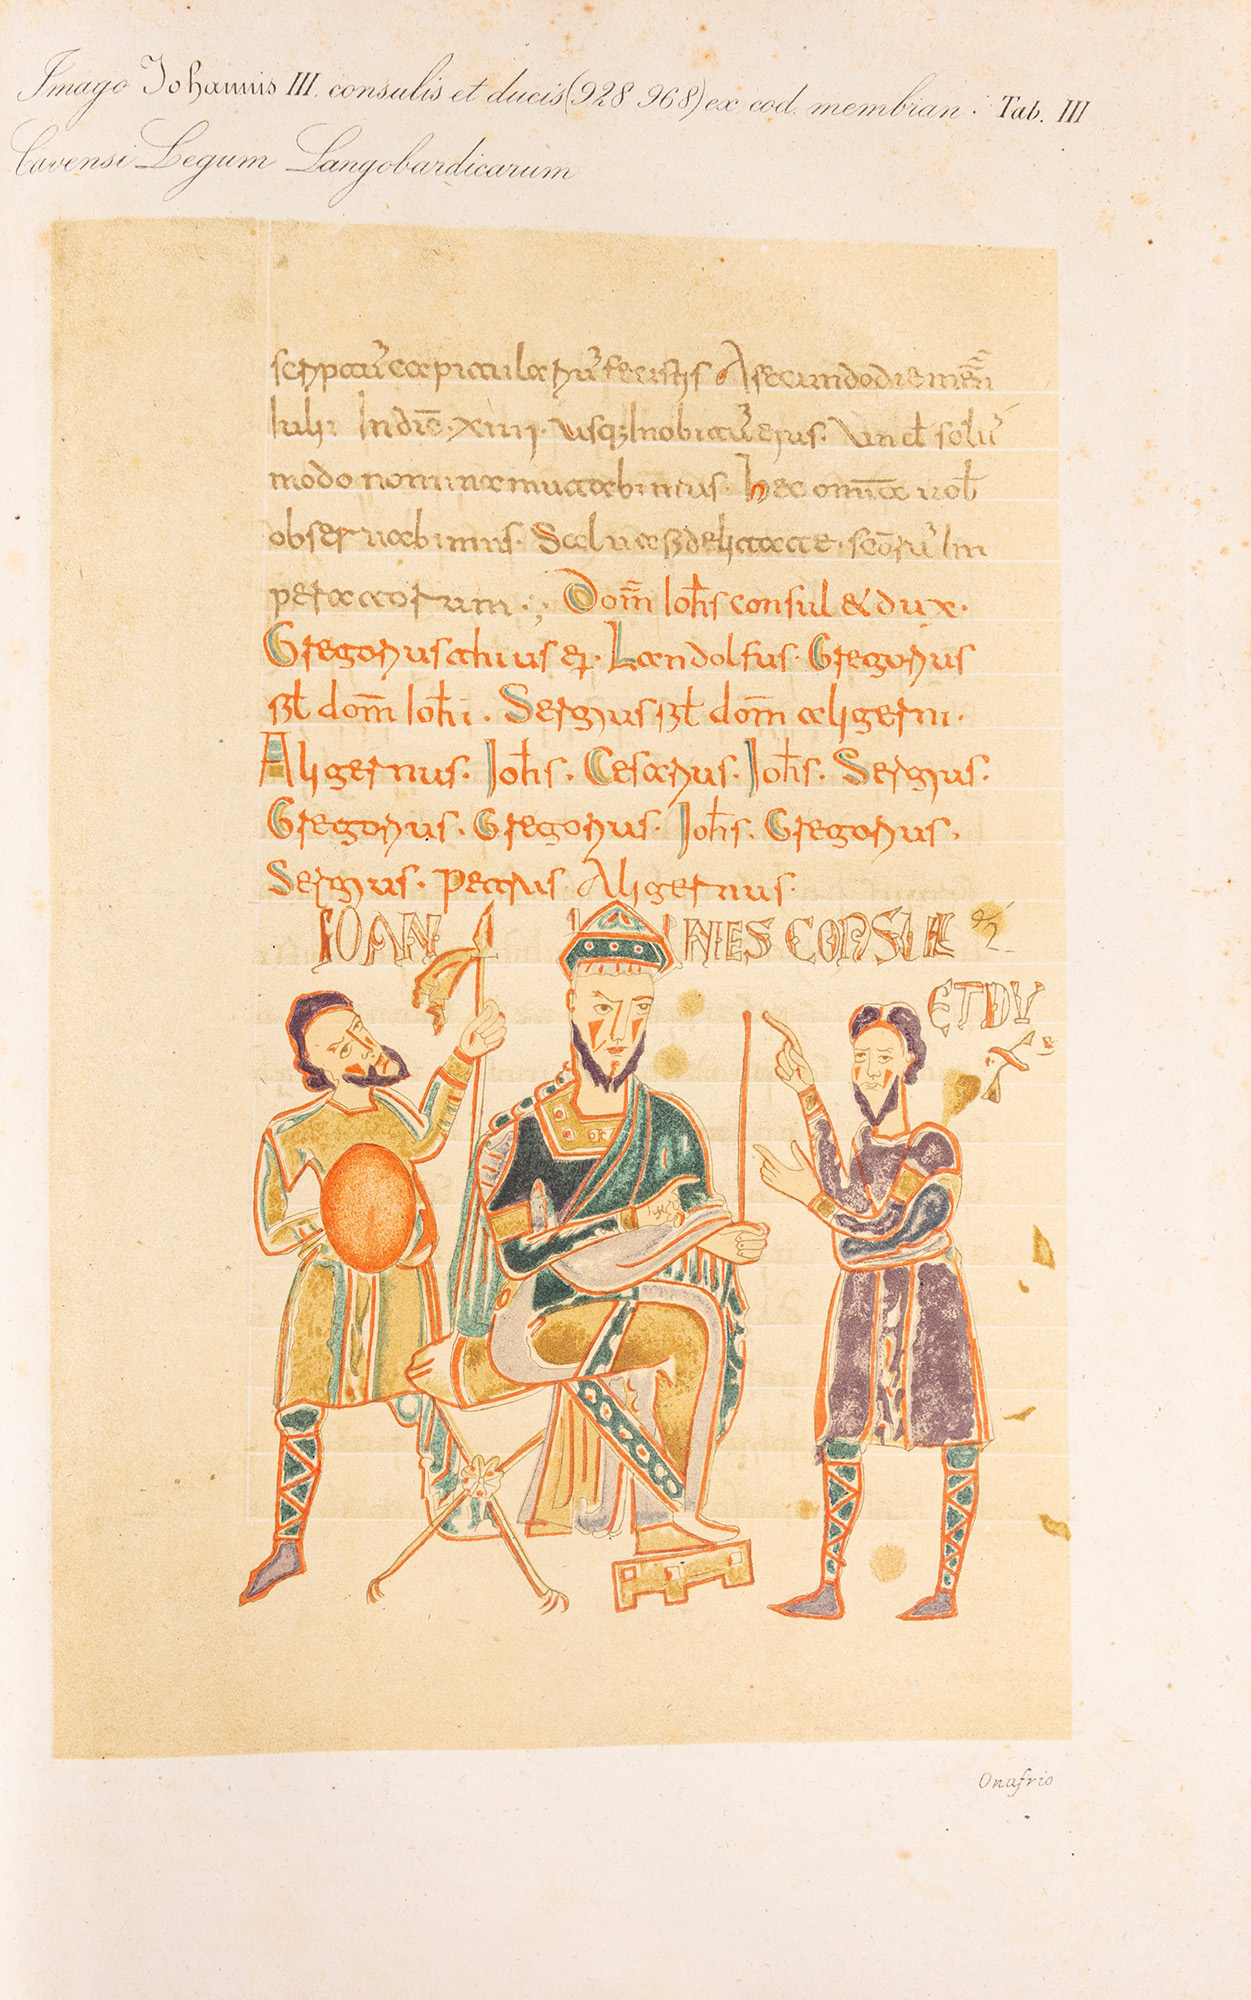 Imago Johannis III. consulis et ducis (928 968) ex cod. membran. Tab. III
Cavensi Legum Langobardicarum
A secundo die men̄
Iulii Indic̄. XIIII. usq; In
modo nomina mutabimus. hec omīa uob̄
obseruabimus. Salua fidelitate. In
petratorum. Dom̄ Ioh̄s consul & dux.
Gregorius atiuus Landolfus Gregorius
dom̄ Ioh̄i. Sergius dom̄ aligerni.
Aligernus. Ioh̄s. Cesarius. Ioh̄s. Sergius.
Gregorius. Gregorius. Ioh̄s. Gregorius.
Sergius. Petrus Aligernus.
IOAN NES CONSUL
ET DU
X
Onafrio